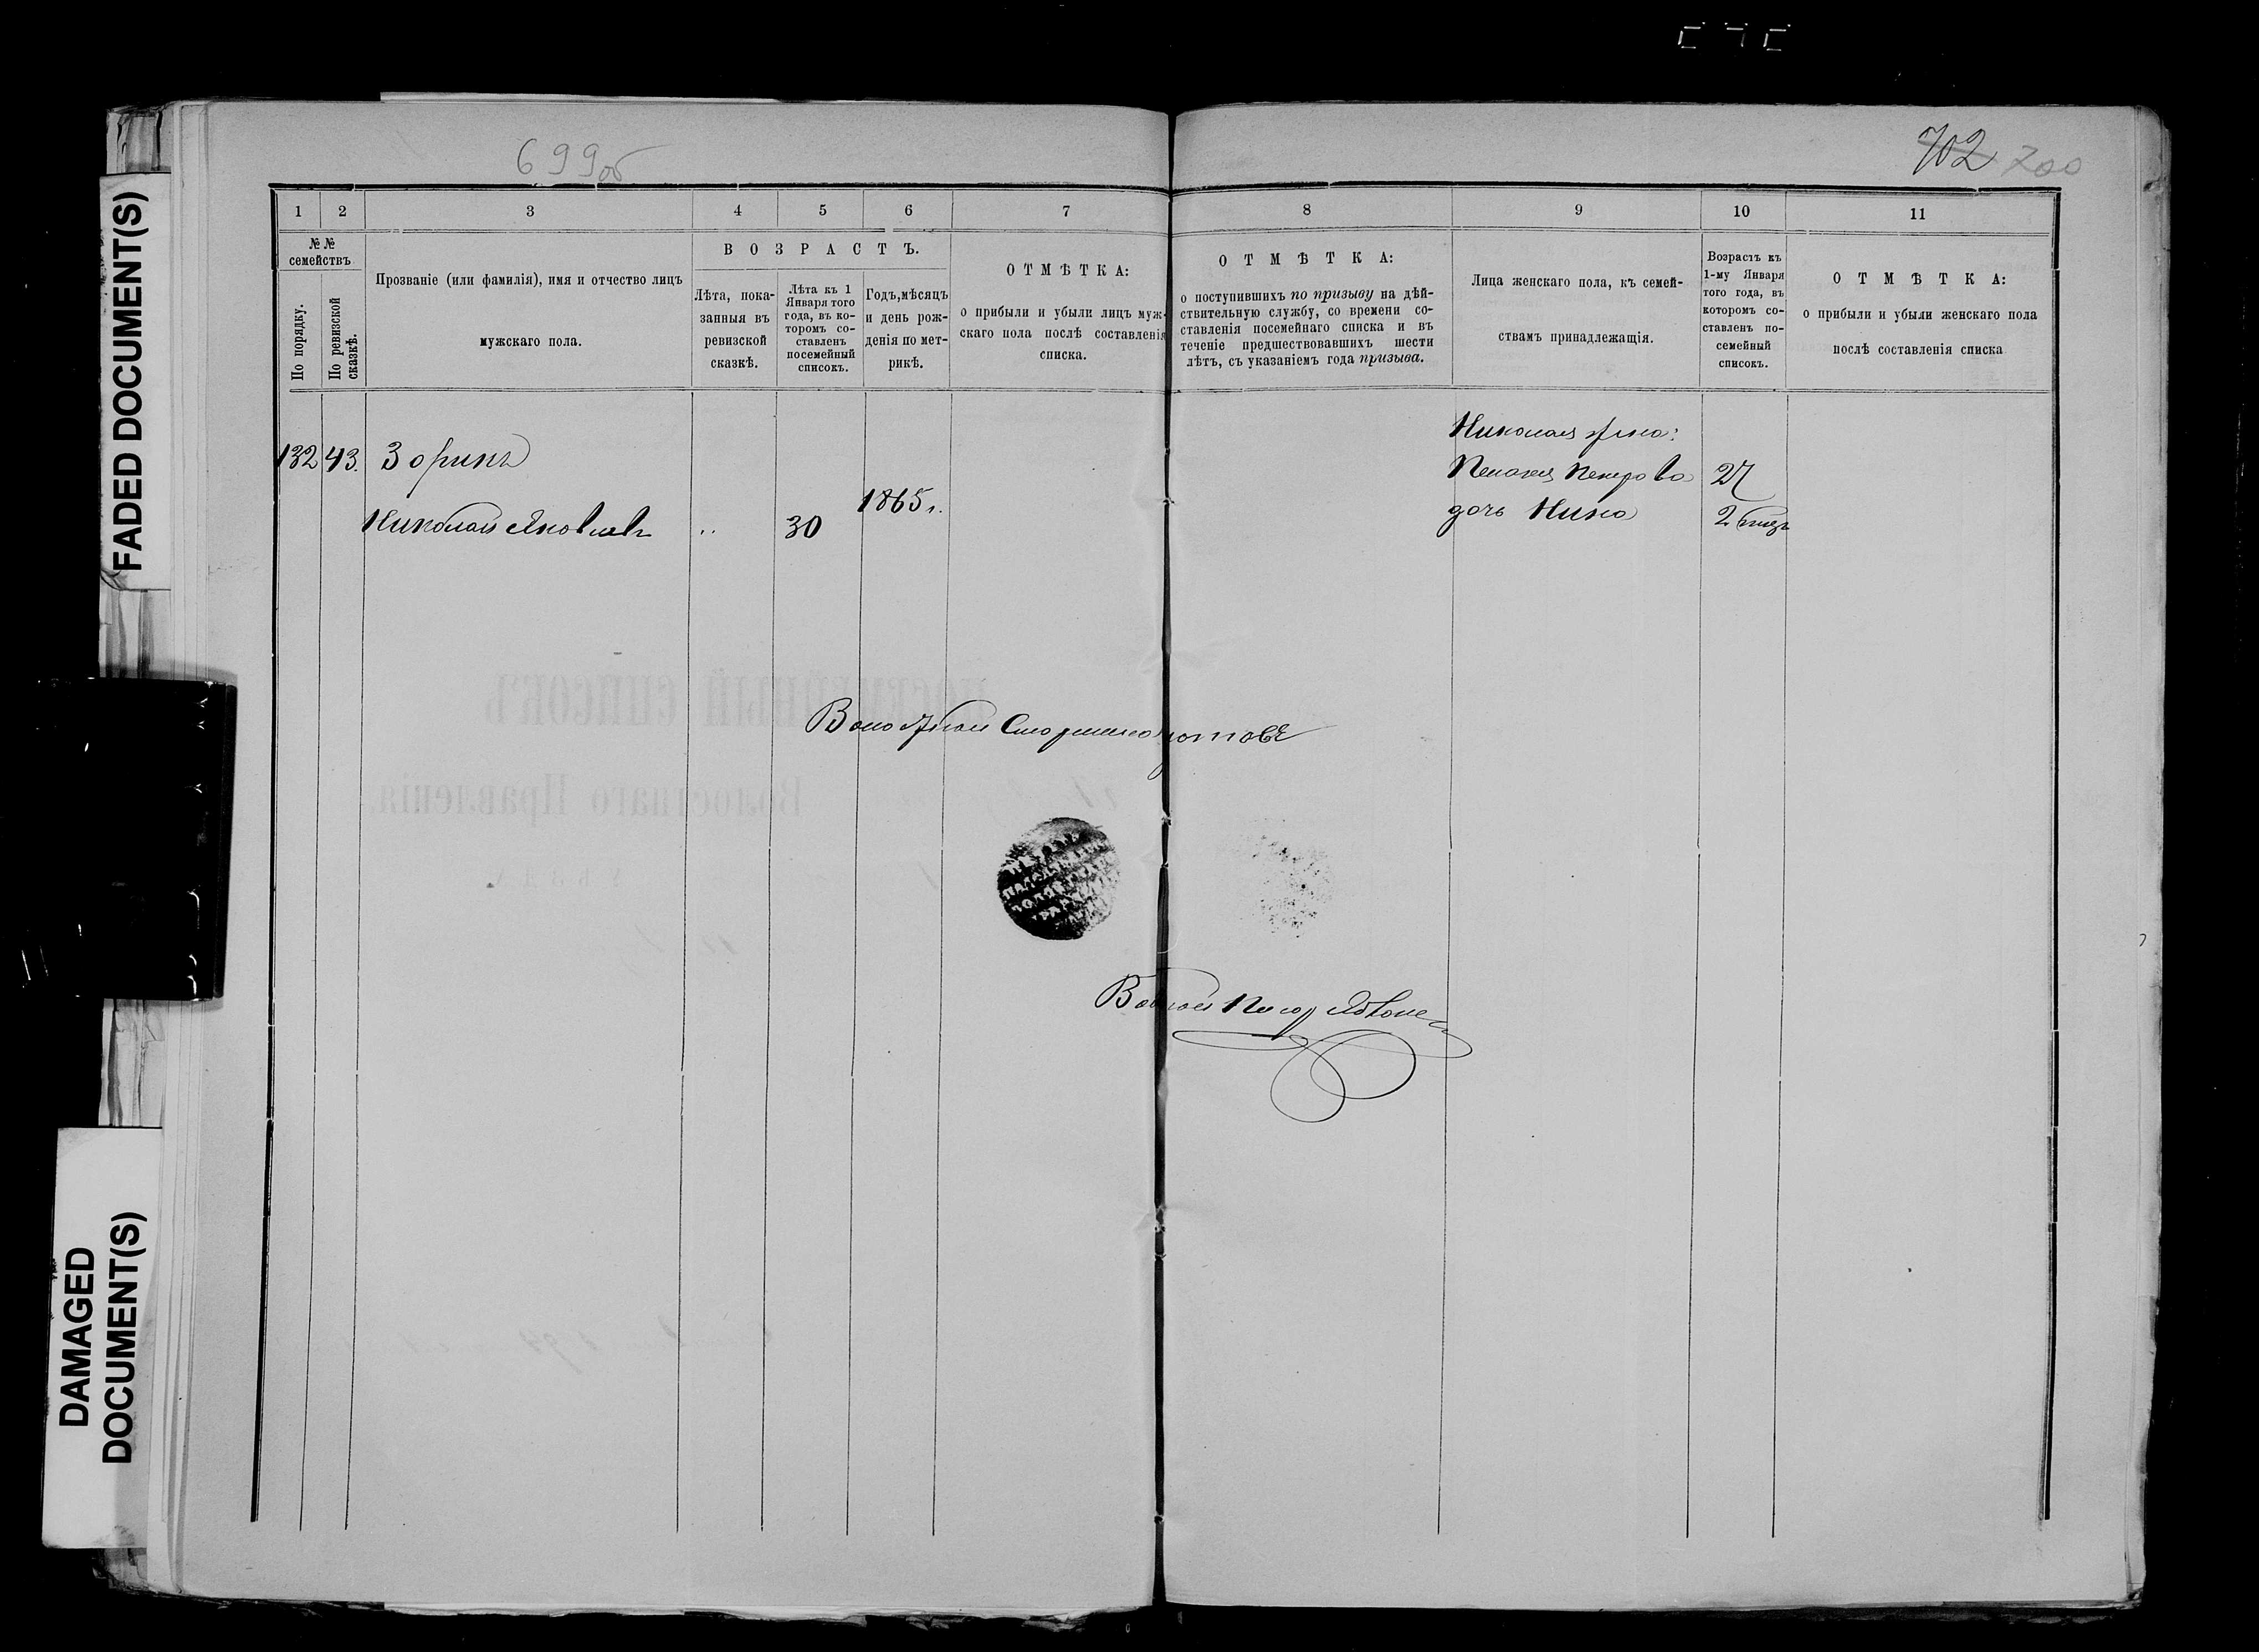 699об
702 700
1
2
3
4
5
6
7
8
9
10
11
№ №
семействъ
По порядку.
По ревизской
сказкѣ.
Прозваніе (или фамилія), имя и отчество лицъ
мужскаго пола.
ВОЗРАСТЪ.
Лѣта, пока-
занныя въ
ревизской
сказкѣ.
Лѣта къ 1
Января того
года, въ ко-
торомъ со-
ставленъ
посемейный
списокъ.
Годъ, мѣсяцъ
и день рож-
денія по мет-
рикѣ.
ОТМѢТКА:
о прибыли и убыли лицъ муж-
скаго пола послѣ составленія
списка.
ОТМѢТКА:
о поступившихъ по призыву на дѣй-
ствительную службу, со времени со-
ставленія посемейнаго списка и въ
теченіе предшествовавшихъ шести
лѣтъ, съ указаніемъ года призыва.
Лица женскаго пола, къ семей-
ствамъ принадлежащія.
Возрастъ къ
1-му Января
того года, въ
которомъ со-
ставленъ по-
семейный
списокъ.
ОТМѢТКА:
о прибыли и убыли женскаго пола
послѣ составленія списка
132 43. Зоринъ
Николай Яковлевъ 30 1865 г.
Николая жена:
Пелагея Петрова 27
дочь Нина 2 мѣс
Волостной Старшина
Волостной Писарь
FADED DOCUMENT(S)
DAMAGED
DOCUMENT(S)